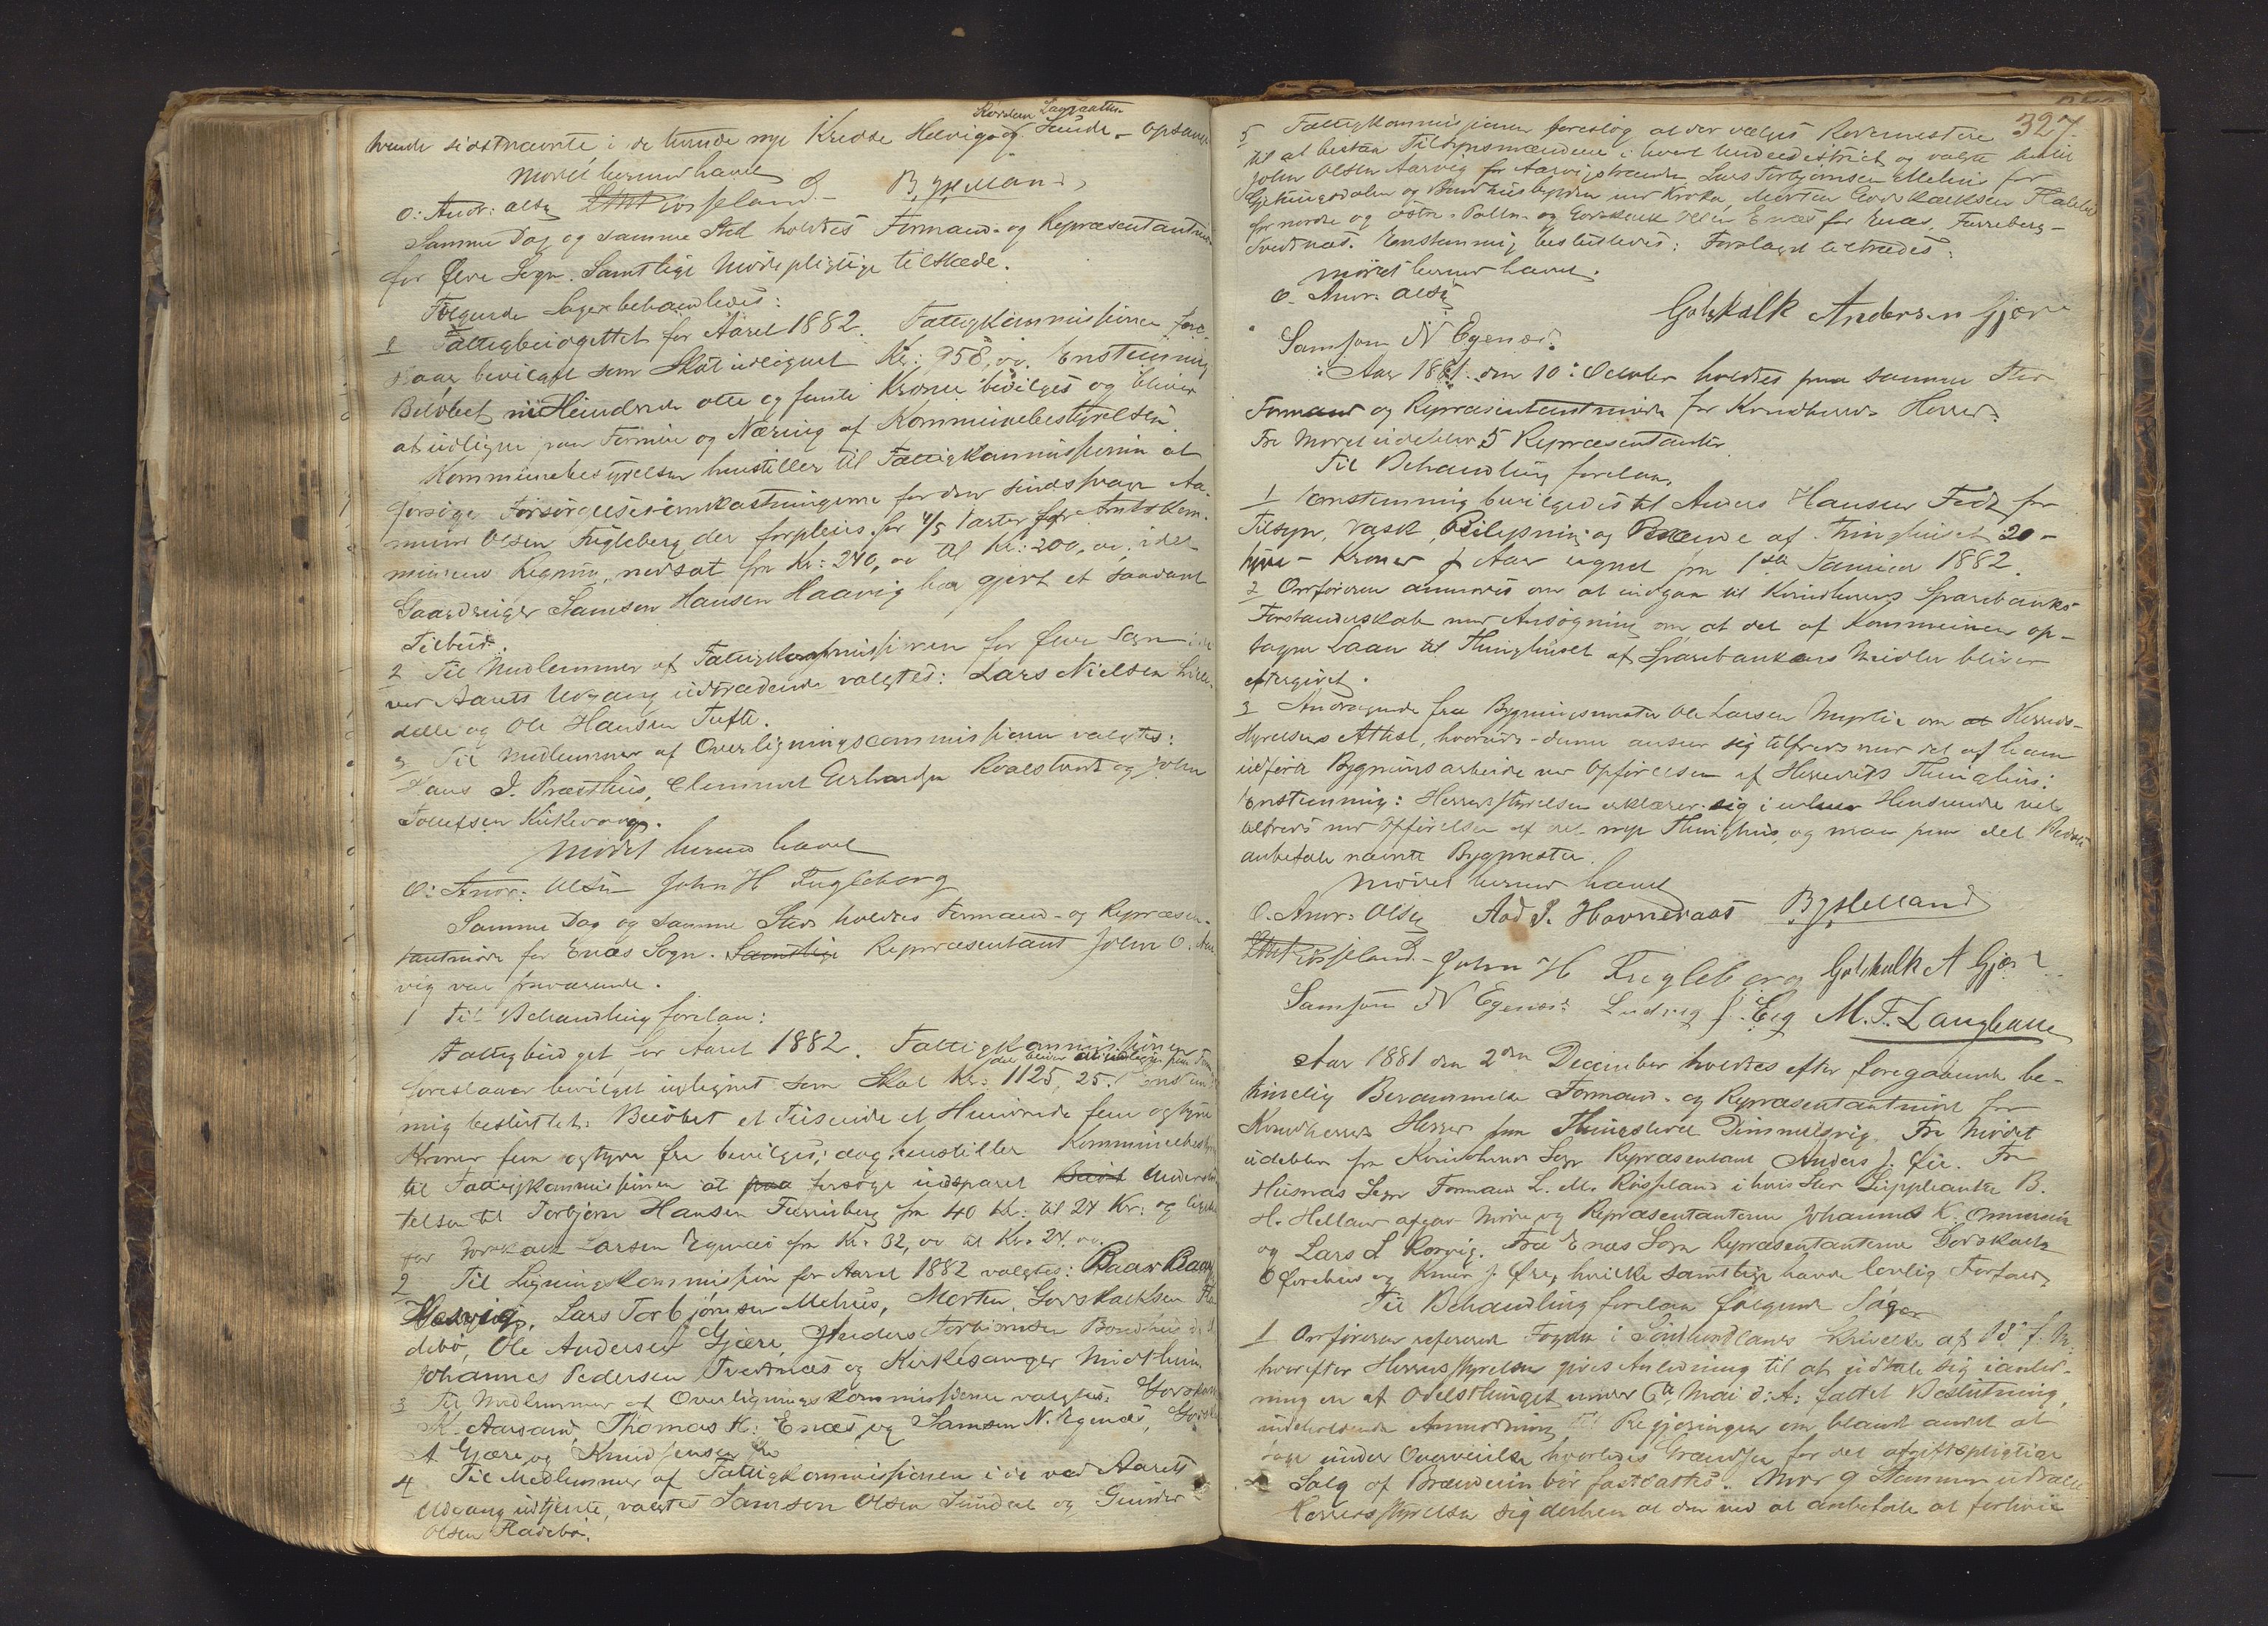 Korsken Laugaatten
hvende sidstnævnte i de tvende nye Kredse Helvig og Sunde - opsaues
Mødet hermed hævet
O: Andr: Olsen LMRösseland - B. H. Helland
Samme Dag og samme Sted holdtes Formand- og Repræsentantmøde
for Ølve Sogn. Samtlige Mødepligtige tilstæde.
Følgende Sager behandledes:
1 Fattigbudgettet for Aaret 1882. Fattigkommissionen fore-
slaar bevilget som Skat udlignet Kr: 958,00. Enstemmig
Beløbet niHundrede otte og femti Kroner bevilges og bliver
at udligne paa Formue og Næring af Kommunebestyrelsen.
Kommunebestyrelsen henstiller til Fattigkommissionen at
forsøge Forsørgelsesomkostningerne for den sindssvage Aa-
mund Olsen Fugleberg der forpleies for 4/5 Parter for Amtskom-
munens Regning, nedsat fra Kr: 240,00 til Kr: 200,00, idet
Gaardbruger Samson Hansen Haavig har gjort et saadant
Tilbud.
2 Til Medlemmer af Fattigkommissionen for Ølve Sogn i de
ved Aarets Udgang udtrædende valgtes: Lars Nielsen Lille-
dale og Ole Hansen Tufte.
3 Til Medlemmer af Overligningscommissionen valgtes:
Hans J. Præsthus, Clemmet Gerhardsen Kvalstvedt og John
Tollefsen Kirkevaag.
Mødet hermed hævet
O: Andr: Olsen John H Fugleberg
Samme Dag og samme Sted holdtes Formand- og Repræsen-
tantmøde for Enæs Sogn. Samtlige Repræsentant John O. Aar
vig var fraværende.
1 Til Behandling forelaa:
Fattigbudget for Aaret 1882. Fattigkommissionen
der bliver at udligne paa Form
foreslaar bevilget udlignet som Skat Kr: 1125,25. Enstem-
mig besluttet: Beløbet et Tusende et Hundrede fem og tyve
Kroner fem og tyve Øre bevilges; dog henstiller Kommunebesty
til Fattigkommissionen at paa forsøge indsparet Bevist Understøt
telsen til Torbjørn Hansen Furuberg fra 40 Kr: til 24 Kr: og ligel
for Godskalk Larsen Egenæs fra Kr. 32,00 til Kr. 24.00.
2 Til Ligningskommission for Aaret 1882 valgtes: Baar Baars
Helvig, Lars Torbjørnsen Mehus, Morten Godskalksen Fla
debø, Ole Andersen Gjære, Anders Torbjørnsen Bondhus
Johannes Pedersen Tvedtnæs og Kirkesanger Midthun
3 Til Medlemmer af Overligningskommissionen valgtes: Godskalk
M. Aarsand, Thomas H: Enæs og Samson N. Egenæs, Godsk
A Gjære og Knud Jensen Øre
4 Til Medlemmer af Fattigkommissionen i de ved Aarets
Udgang udtjente, valgtes Samson Olsen Sundal og Gunder
Olsen Fladebø.
327.
5 Fattigkommissionen foreslog at der vælges Rodemestere
til at bestaa Tilsynsmændene i hvert Underdistrict og valgte hertil
John Olsen Aarvig for Aarvigstranden Lars Torbjørnsen Mehus for
Gjetingsdalen og Bondhusbygden med Kroka, Morten Godskalksen Fladebø
for nordre og østre Pollen og Godskalk Olsen Enæs for Enæs, Furreberg-
Tvedtnæs. Enstemmig besluttedes: Forslaget tiltrædes.
Mødet hermed hævet.
O. Andr: Olsen
Gotskalk Andersen Gjære
Samson N Egenes.
Aar 1881 den 10de October holdtes paa samme Sted
Formand og Repræsentantmøde for Kvindherreds Herred.
Fra Mødet udeblev 5 Repræsentanter.
Til Behandling forelaa
1 Enstemmig bevilgedes til Anders Hansen Fedt for
Tilsyn, Vask, Belysning og Brænde af Thinghuset 20 -
tyve - Kroner pr Aar regnet fra 1ste Januar 1882.
2 Ordføreren anmodes om at indgaa til Kvindherreds Sparebanks
Forstanderskab med Ansøgning om, at det af Kommunen op-
tagne Laan til Thinghuset af Sparebankens Midler bliver
eftergivet.
3 Andragende fra Bygningsmester Ole Larsen Myrlie om at Herreds-
styrelsens Attest, hvorvidt denne anser sig tilfreds med det af ham
udførte Bygningsarbeide ved Opførelsen af Herredets Thinghus.
Enstemmig: Herredsstyrelsen erklærer sig i enhver Henseende vel
tilfreds med Opførelsen af det nye Thinghus, og maa paa det Bedste
anbefale nævnte Bygmester.
Mødet hermed hævet
O. Andr: Olsen Aad J. Hovneraas B H Helland
LMRösseland - John H Fugleberg Gotskalk A Gjære
Samson N Egenes. Ludvig J. Eeg M. F. Zangballe
Aar 1881 den 2den December holdtes efter foregaaende be-
timelig Berammelse Formand- og Repræsentantmøde for
Kvindherreds Herred paa Thingstedet Dimmelsvig. Fra Mødet
udeblev fra Kvindherreds Sogn Repræsentant Anders J. Øie. Fra
Husnæs Sogn Formand L. M. Røsseland i hvis Sted Suppleanten B.
H. Helland afgav Møde og Repræsentanterne Johannes K. Ommundsen
og Lars L Rorvig. Fra Enæs Sogn Repræsentanterne Godskalk
Ø Furehus og Knud J. Øre, hvilke samtlige havde lovlig Forfald.
Til Behandling forelaa følgende Sager
1 Ordføreren refererede Fogden i Søndhordlands Skrivelse af 18de f. M.
hvorefter Herredsstyrelsen gives Anledning til at udtale sig i anled-
ning en af Odelsthinget under 6te Mai d: A: fattet Beslutning,
indeholdende Anmodning til Regjeringen om blandt andet at
tage under Overveielse hvorledes Grændsen for det afgiftspligtige
Salg af Brændevin bør fastsættes. Mod 9 Stemmer udtalte
Herredsstyrelsen sig derhen at den ved at anbefale at forbeie